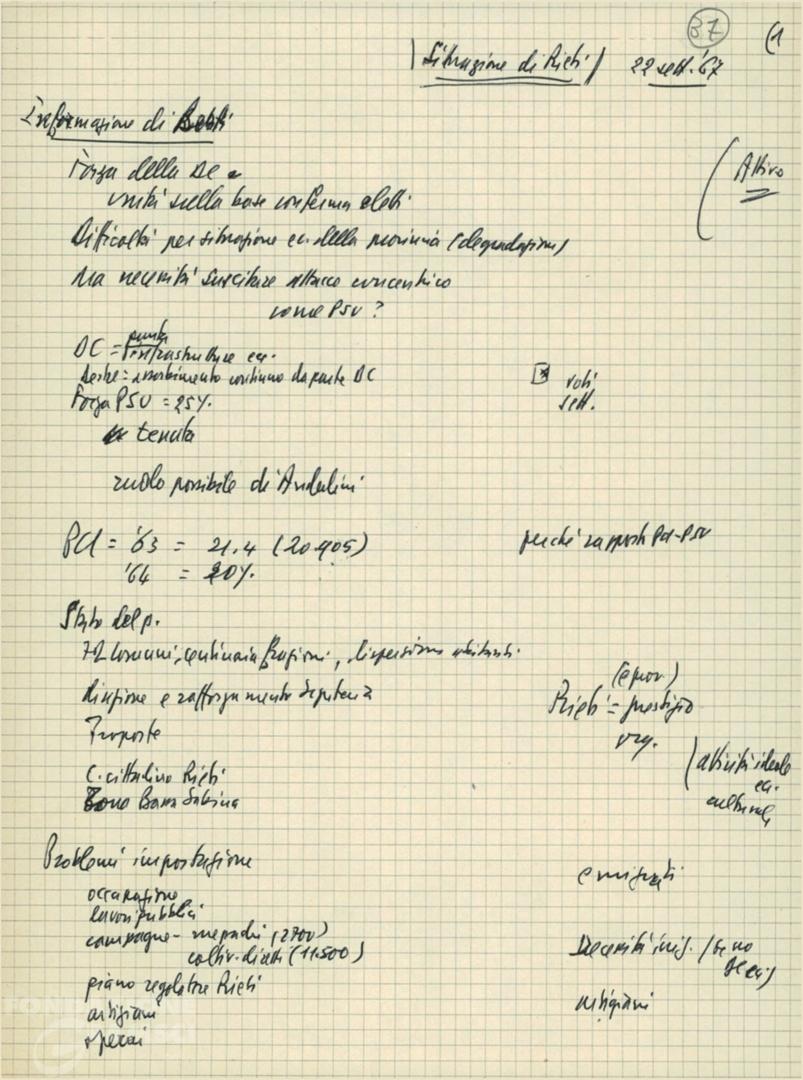 37 (1
Situazione di Rieti 22 sett. '67
Informazione di
Forza della DC
unità sulla base conferma eletti
(Attivo
Difficoltà per situazione ec. della provincia (degradazione)
Ma necessità suscitare attacco concentrico
come PSU?
DC = punta infrastrutture ec.
Destre = assorbimento continuo da parte DC
voti
Forza PSU = 25%
sett.
tenuta
ruolo possibile di Anderlini
PCI = '63 = 21.4 (20.905)
perché rapporti PCI-PSU
'64 = 20%
Stato del p.
72 comuni, centinaia frazioni, dispersione abitanti
(e prov.)
direzione e rafforzamento
Rieti = prestigio
Proposte
org.
C. cittadino Rieti
(attività ideale
ec.
Zona Bassa Sabina
culturale
Problemi impostazione
emigrati
occupazione
lavori pubblici
campagne - mezzadri (2700)
coltiv. diretti (11.500)
Necessità
piano regolatore Rieti
artigiani
artigiani
operai